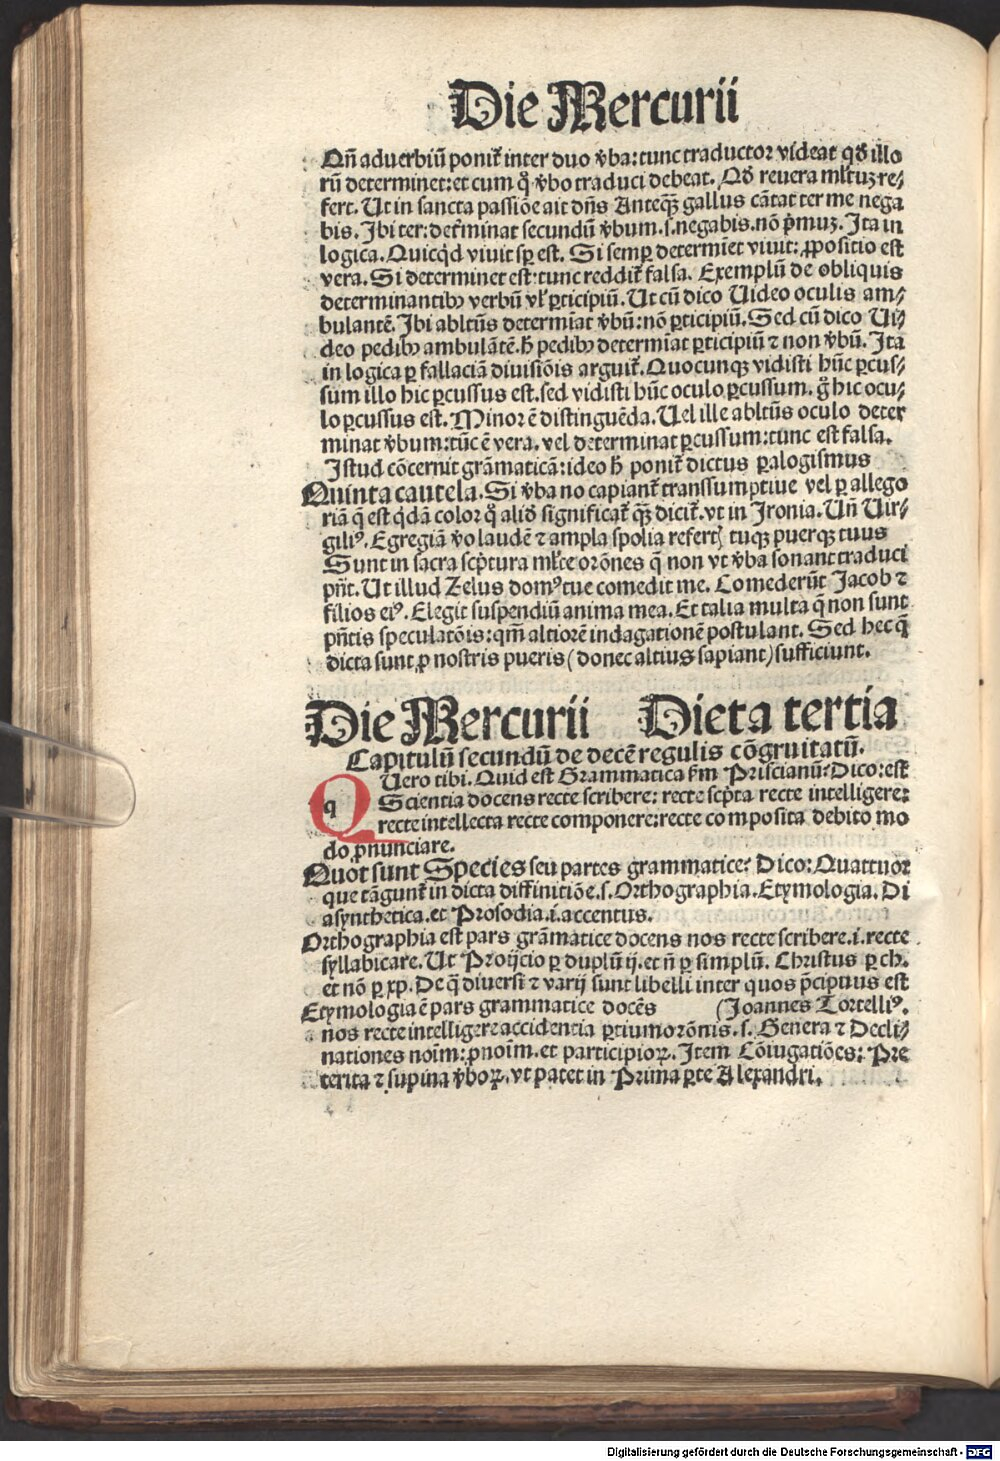 Die Mercurii
Qn̄ aduerbiū ponit᷑ inter duo v̄ba: tunc traductor videat qđ illo
rū determinet: et cum q̊ v̄bo traduci debeat. Qđ reuera ml̄tuꝫ re⸗
fert. Ut in sancta passiōe ait dn̄s Anteqꝫ̄ gallus cātat ter me nega
bis. Ibi ter: def̄minat secundū v̄bum .s. negabis. nō p̄muꝫ. Ita in
logica. Quicq̇d viuit sꝑ est. Si semꝑ determīet viuit: ꝓpositio est
vera. Si determinet est: tunc reddit᷑ falsa. Exemplū de obliquis
determinantibꝰ verbū vl̓ ꝑticipiū. Ut cū dico Uideo oculis am⸗
bulantē. Ibi abltūs determīat v̄bū: nō ꝑticipiū. Sed cū dico Ui⸗
deo pedibꝰ ambulātē. h̄ pedibꝰ determīat ꝑticipiū ⁊ non v̄bū. Ita
in logica ꝑ fallaciā diuisiōis arguit᷑. Quocunqꝫ vidisti hūc ꝑcus⸗
sum illo hic ꝑcussus est. sed vidisti hūc oculo ꝑcussum. g̊ hic ocu⸗
lo ꝑcussus est. Minor ē distinguēda. Uel ille abltūs oculo deter
minat v̄bum: tūc ē vera. vel determinat ꝑcussum: tunc est falsa.
Istud cōcernit grāmaticā: ideo h̄ ponit᷑ dictus ꝑalogismus
Quinta cautela. Si v̄ba no capiant᷑ transsumptiue vel ꝑ allego
riā q̄ est q̇dā color q̊ aliđ significat᷑ qꝫ̄ dicit᷑. vt in Ironia. Un̄ Uir⸗
giliꝰ. Egregiā v̄o laudē ⁊ ampla spolia refert] tuqꝫ puerqꝫ tuus
Sunt in sacra scp̄tura ml̄te orōnes q̄ non vt v̄ba sonant traduci
pn̄t. Ut illud Zelus domꝰ tue comedit me. Comederūt Jacob ⁊
filios eiꝰ. Elegit suspendiū anima mea. Et talia multa q̄ non sunt
pn̄tis speculatōis: qm̄ altiorē indagationē postulant. Sed hec q̄
dicta sunt ꝓ nostris pueris (donec altius sapiant) sufficiunt.
Die Mercurii Dieta tertia
Capitulū secundū de decē regulis cōgruitatū.
Q
q Uero tibi. Quid est Grammatica ẜm Priscianū? Dico: est
Scientia docens recte scribere: recte scp̄ta recte intelligere:
recte intellecta recte componere: recte composita debito mo
do ꝓnunciare.
Quot sunt Species seu partes grammatice? Dico: Quattuor
que tāgunt᷑ in dicta diffinitiōe .s. Orthographia. Etymologia. Di
asynthetica. et Prosodia .i. accentus.
Orthographia est pars grāmatice docens nos recte scribere .i. recte
syllabicare. Ut Proijcio ꝑ duplū ij. et n̄ ꝑ simplū. Christus ꝑ ch.
et nō ꝑ xp. De q̄ diuersi ⁊ varij sunt libelli inter quos p̄cipuus est
Etymologia ē pars grammatice docēs (Joannes Tortelliꝰ.
nos recte intelligere accidentia ꝑtium orōnis .s. Genera ⁊ Decli⸗
nationes noīm: ꝓnoīm. et participioꝝ. Item Cōiugatiōes: Pre
terita ⁊ supina v̄boꝝ. vt patet in Prima ꝑte Alexandri.
Digitalisierung gefördert durch die Deutsche Forschungsgemeinschaft - DFG